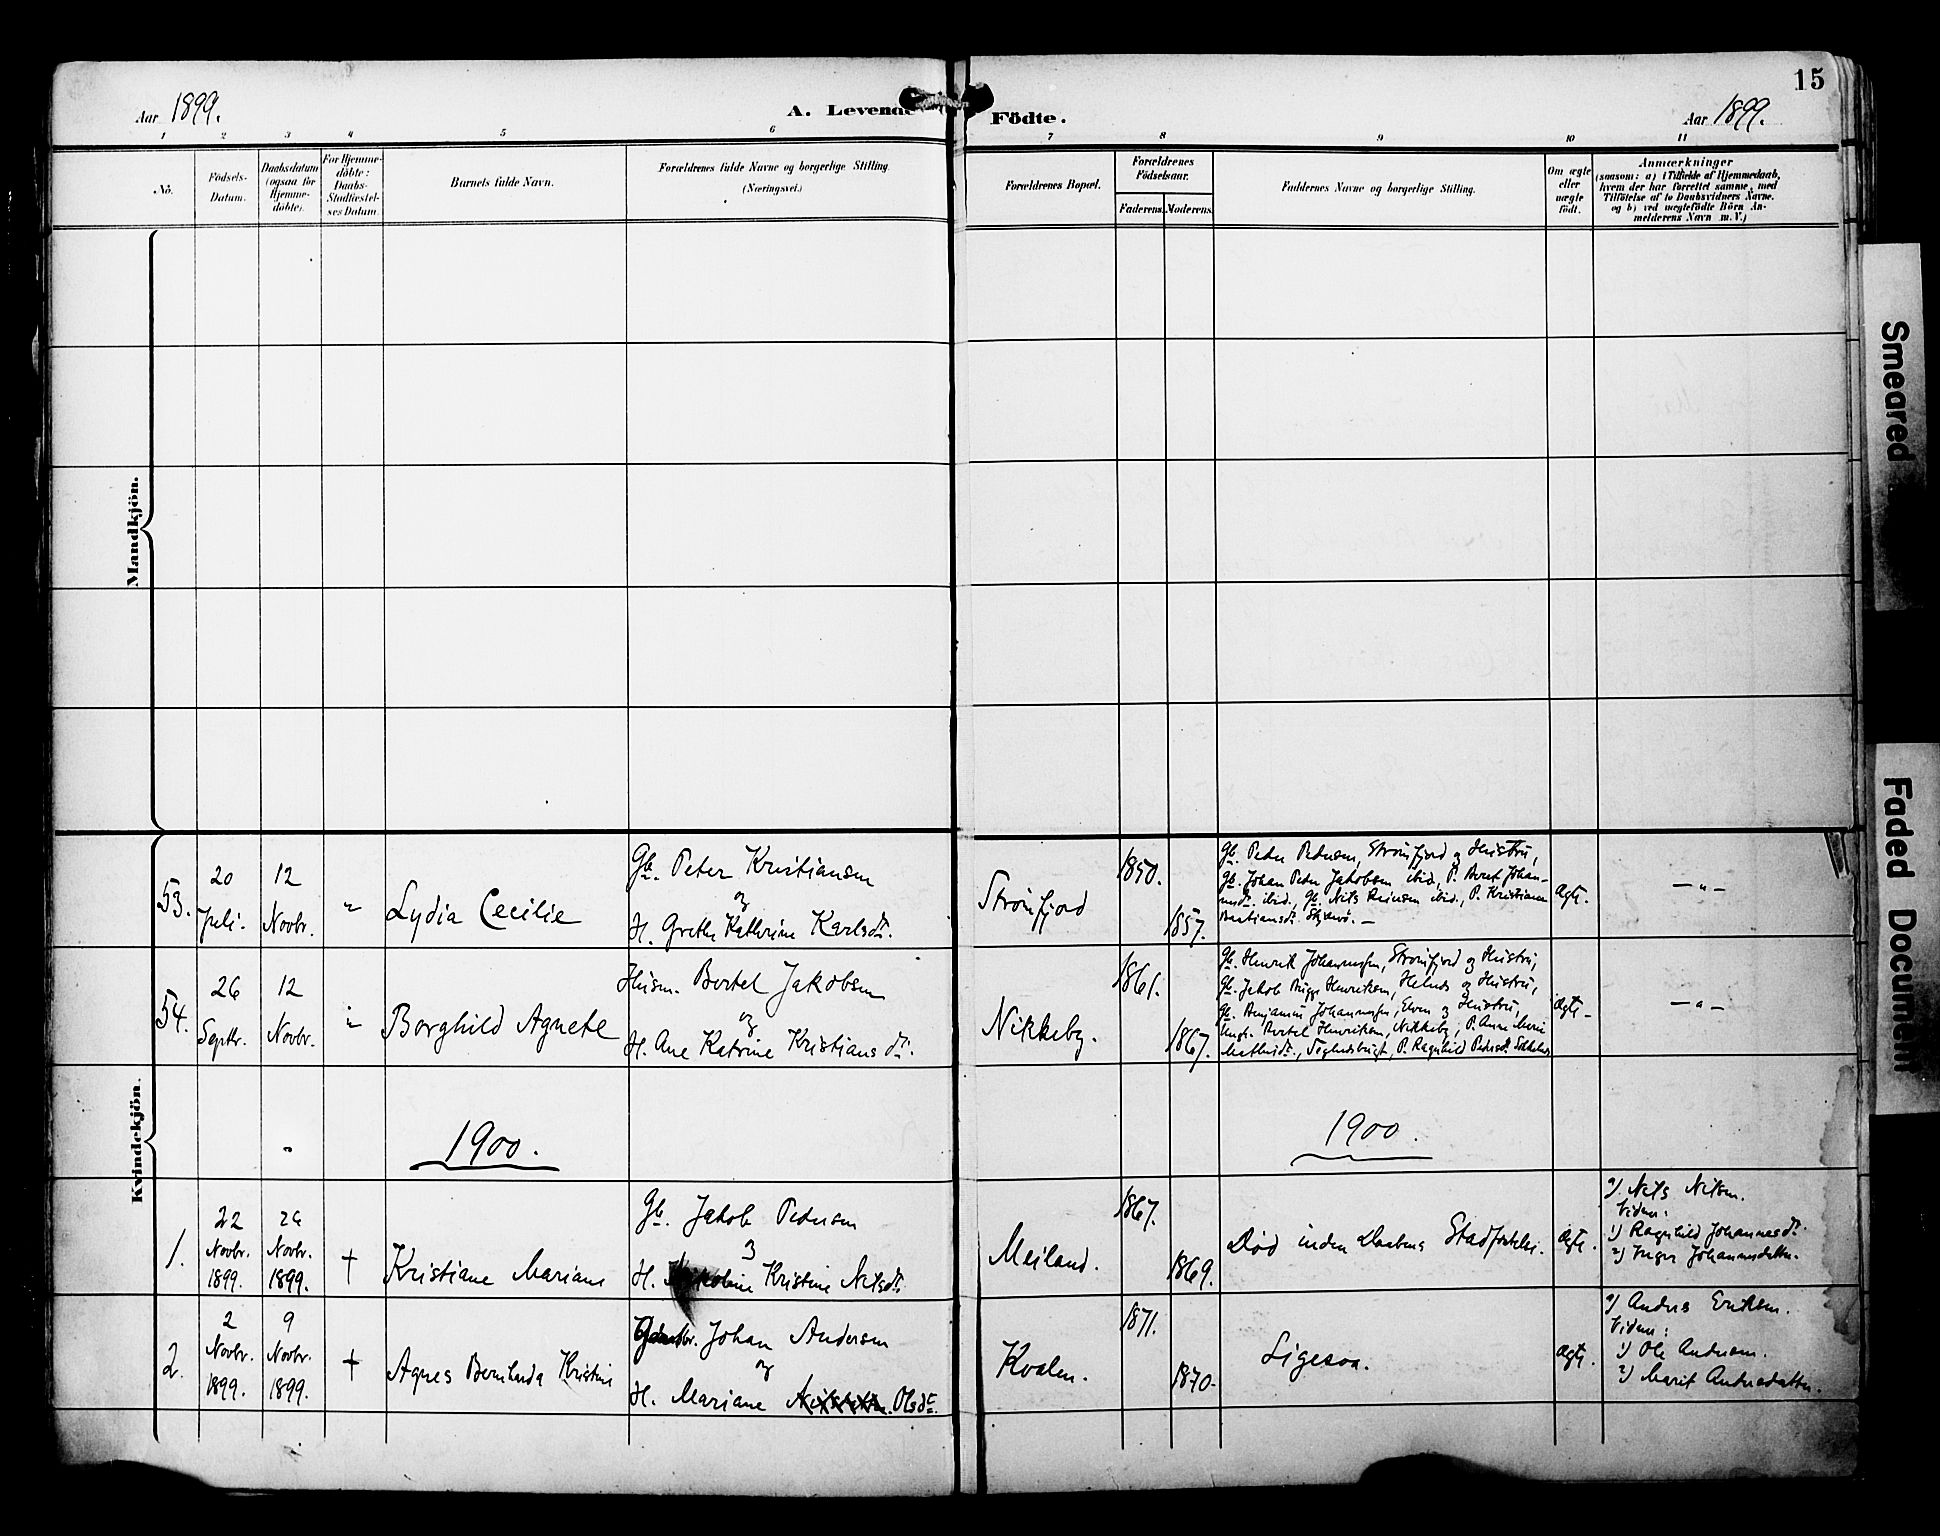 15
Aar 1899.
A. Levende Födte.
Aar 1899.
1 2 3 4 5 6 7 8 9 10 11
No.
Födsels-
Datum.
Daabsdatum
(ogsaa for
Hjemme-
döbte).
For Hjemme-
döbte:
Daabs-
Stadfæstel-
ses Datum.
Barnets fulde Navn.
Forældrenes fulde Navne og borgerlige Stilling.
(Næringsvei.)
Forældrenes Bopæl.
Forældrenes
Födselsaar.
Faderens. Moderens.
Faddernes Navne og borgerlige Stilling.
Om ægte
eller
uægte
födt.
Anmærkninger
(saasom: a) i Tilfælde af Hjemmedaab,
hvem der har forrettet samme, med
Tilföielse af to Daabsvidners Navne.
og b) ved uægtefödte Börn An-
melderens Navn m. V.)
Mandkjön.
Kvindekjön.
53.
20
Juli.
12
Novbr.
"
Lydia Cecilie
Gb. Peter Kristiansen
og
H. Grethe Kathrine Karlsdt.
Strömfjord
1850.
1857.
Gb. Peder Pedersen, Strömfjord og Hustru,
Gb. Johan Peder Jakobsen ibid., P. Beret Johan-
nesdt. ibid., Gb. Nils Reinsen ibid., P. Kristianna
Bastiansdt.
Ægte.
— " —
54.
26
Septbr.
12
Novbr.
"
Borghild Agnete
Husm. Bertel Jakobsen
og
H. Ane Katrine Kristiansdt.
Nikkeby.
1861.
1867.
Gb. Henrik Johannessen, Strömfjord og Hustru,
Gb. Jakob Henriksen, Helnes og Hustru,
Gb. Benjamin Johannessen, Elven og Hustru,
Ungk. Bertel Henriksen, Nikkeby, P. Anne Marie
P. Ragnhild Pedersdt.
Ægte
— " —
1900.
1900.
1.
22
Novbr.
1899.
26
Novbr.
1899.
†
Kristiane Mariane
Gb. Jakob Pedersen
og
H. Kristine Nilsdt.
Meiland.
1867.
1869.
Död inden Daabens Stadfæstelse.
Ægte.
a) Nils Nilsen.
Vidner:
1) Ragnhild Johannesdt.
2) Inger Johannesdatter.
2.
2
Novbr.
1899.
9
Novbr.
1899.
†
Agnes Bernharda Kristine
Johan Andersen
og
H. Mariane Olsdt.
Kvalen.
1871.
1870.
Ligesaa.
Ægte.
a) Anders Eriksen.
Vidner:
1) Ole Andersen.
2) Marit Andersdatter.
Smeared
Faded Document